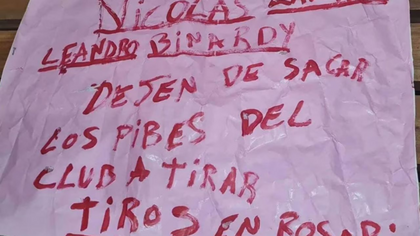 NICOLAS
LEANDRO BINARDY
DEJEN DE SACAR
LOS PIBES DEL
CLUB A TIRAR
TIROS EN ROSARI